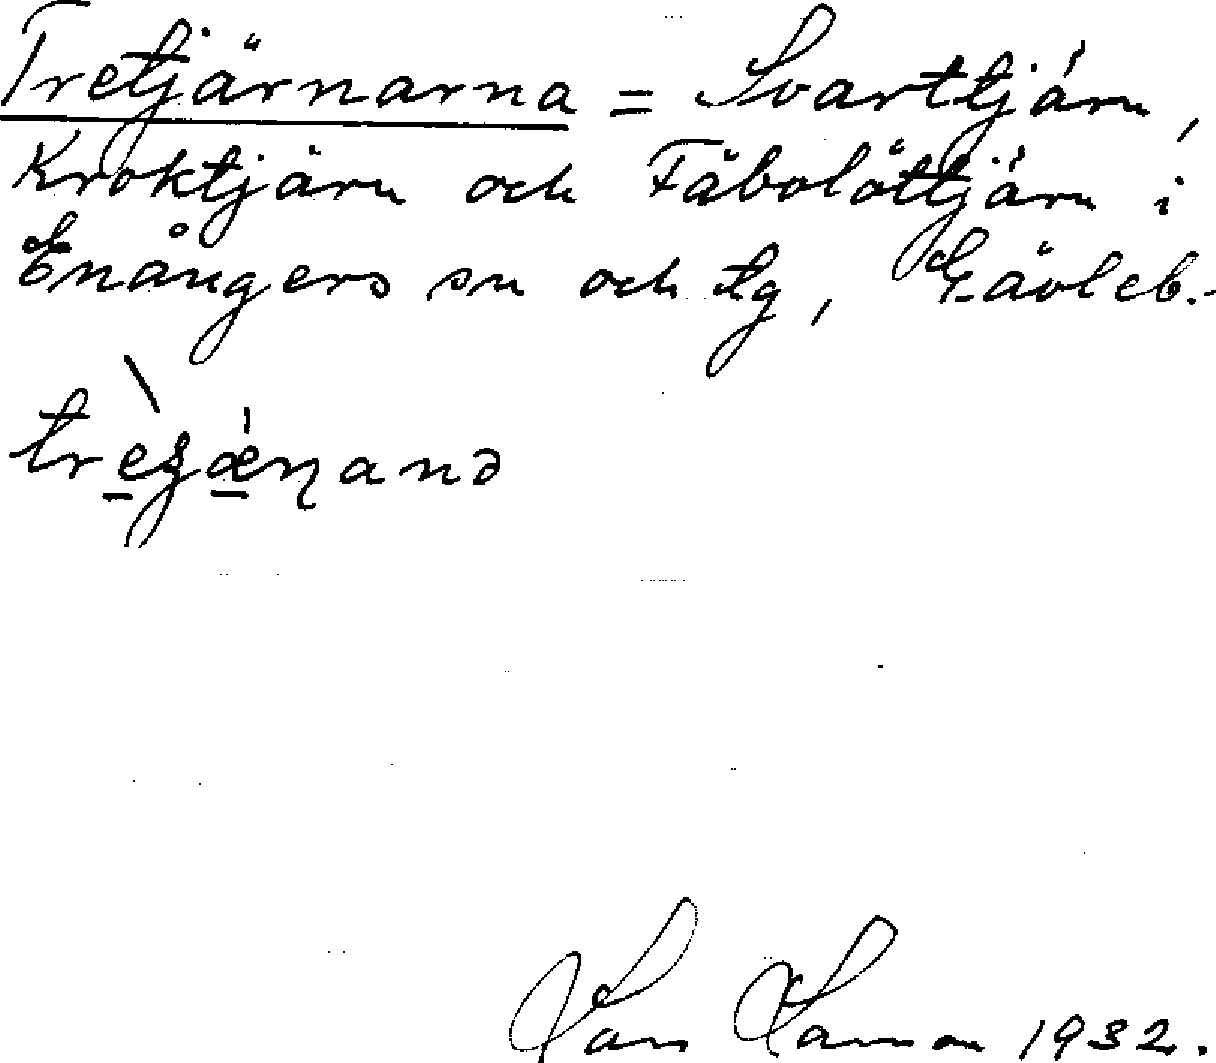 Tretjärnarna = Svarttjärn,
Kroktjärn och Fäbolöttjärn i
Enångers sn och tg, Gävleb.
Lars Larsson 1932.